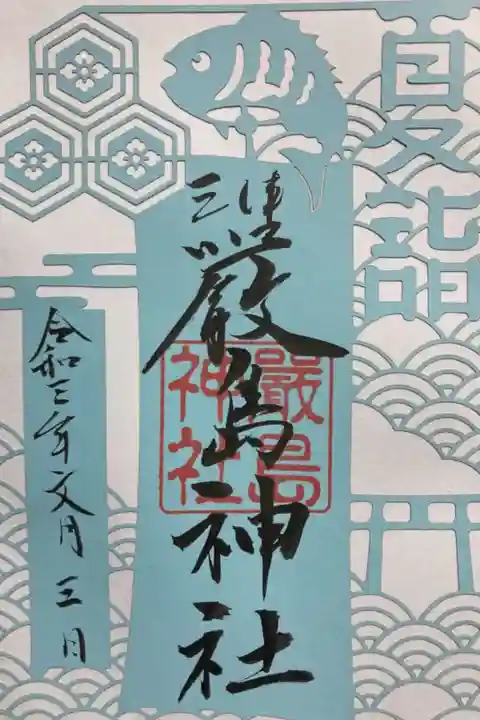 夏詣
三津
厳島神社
嚴島
神社
令和三年文月三日